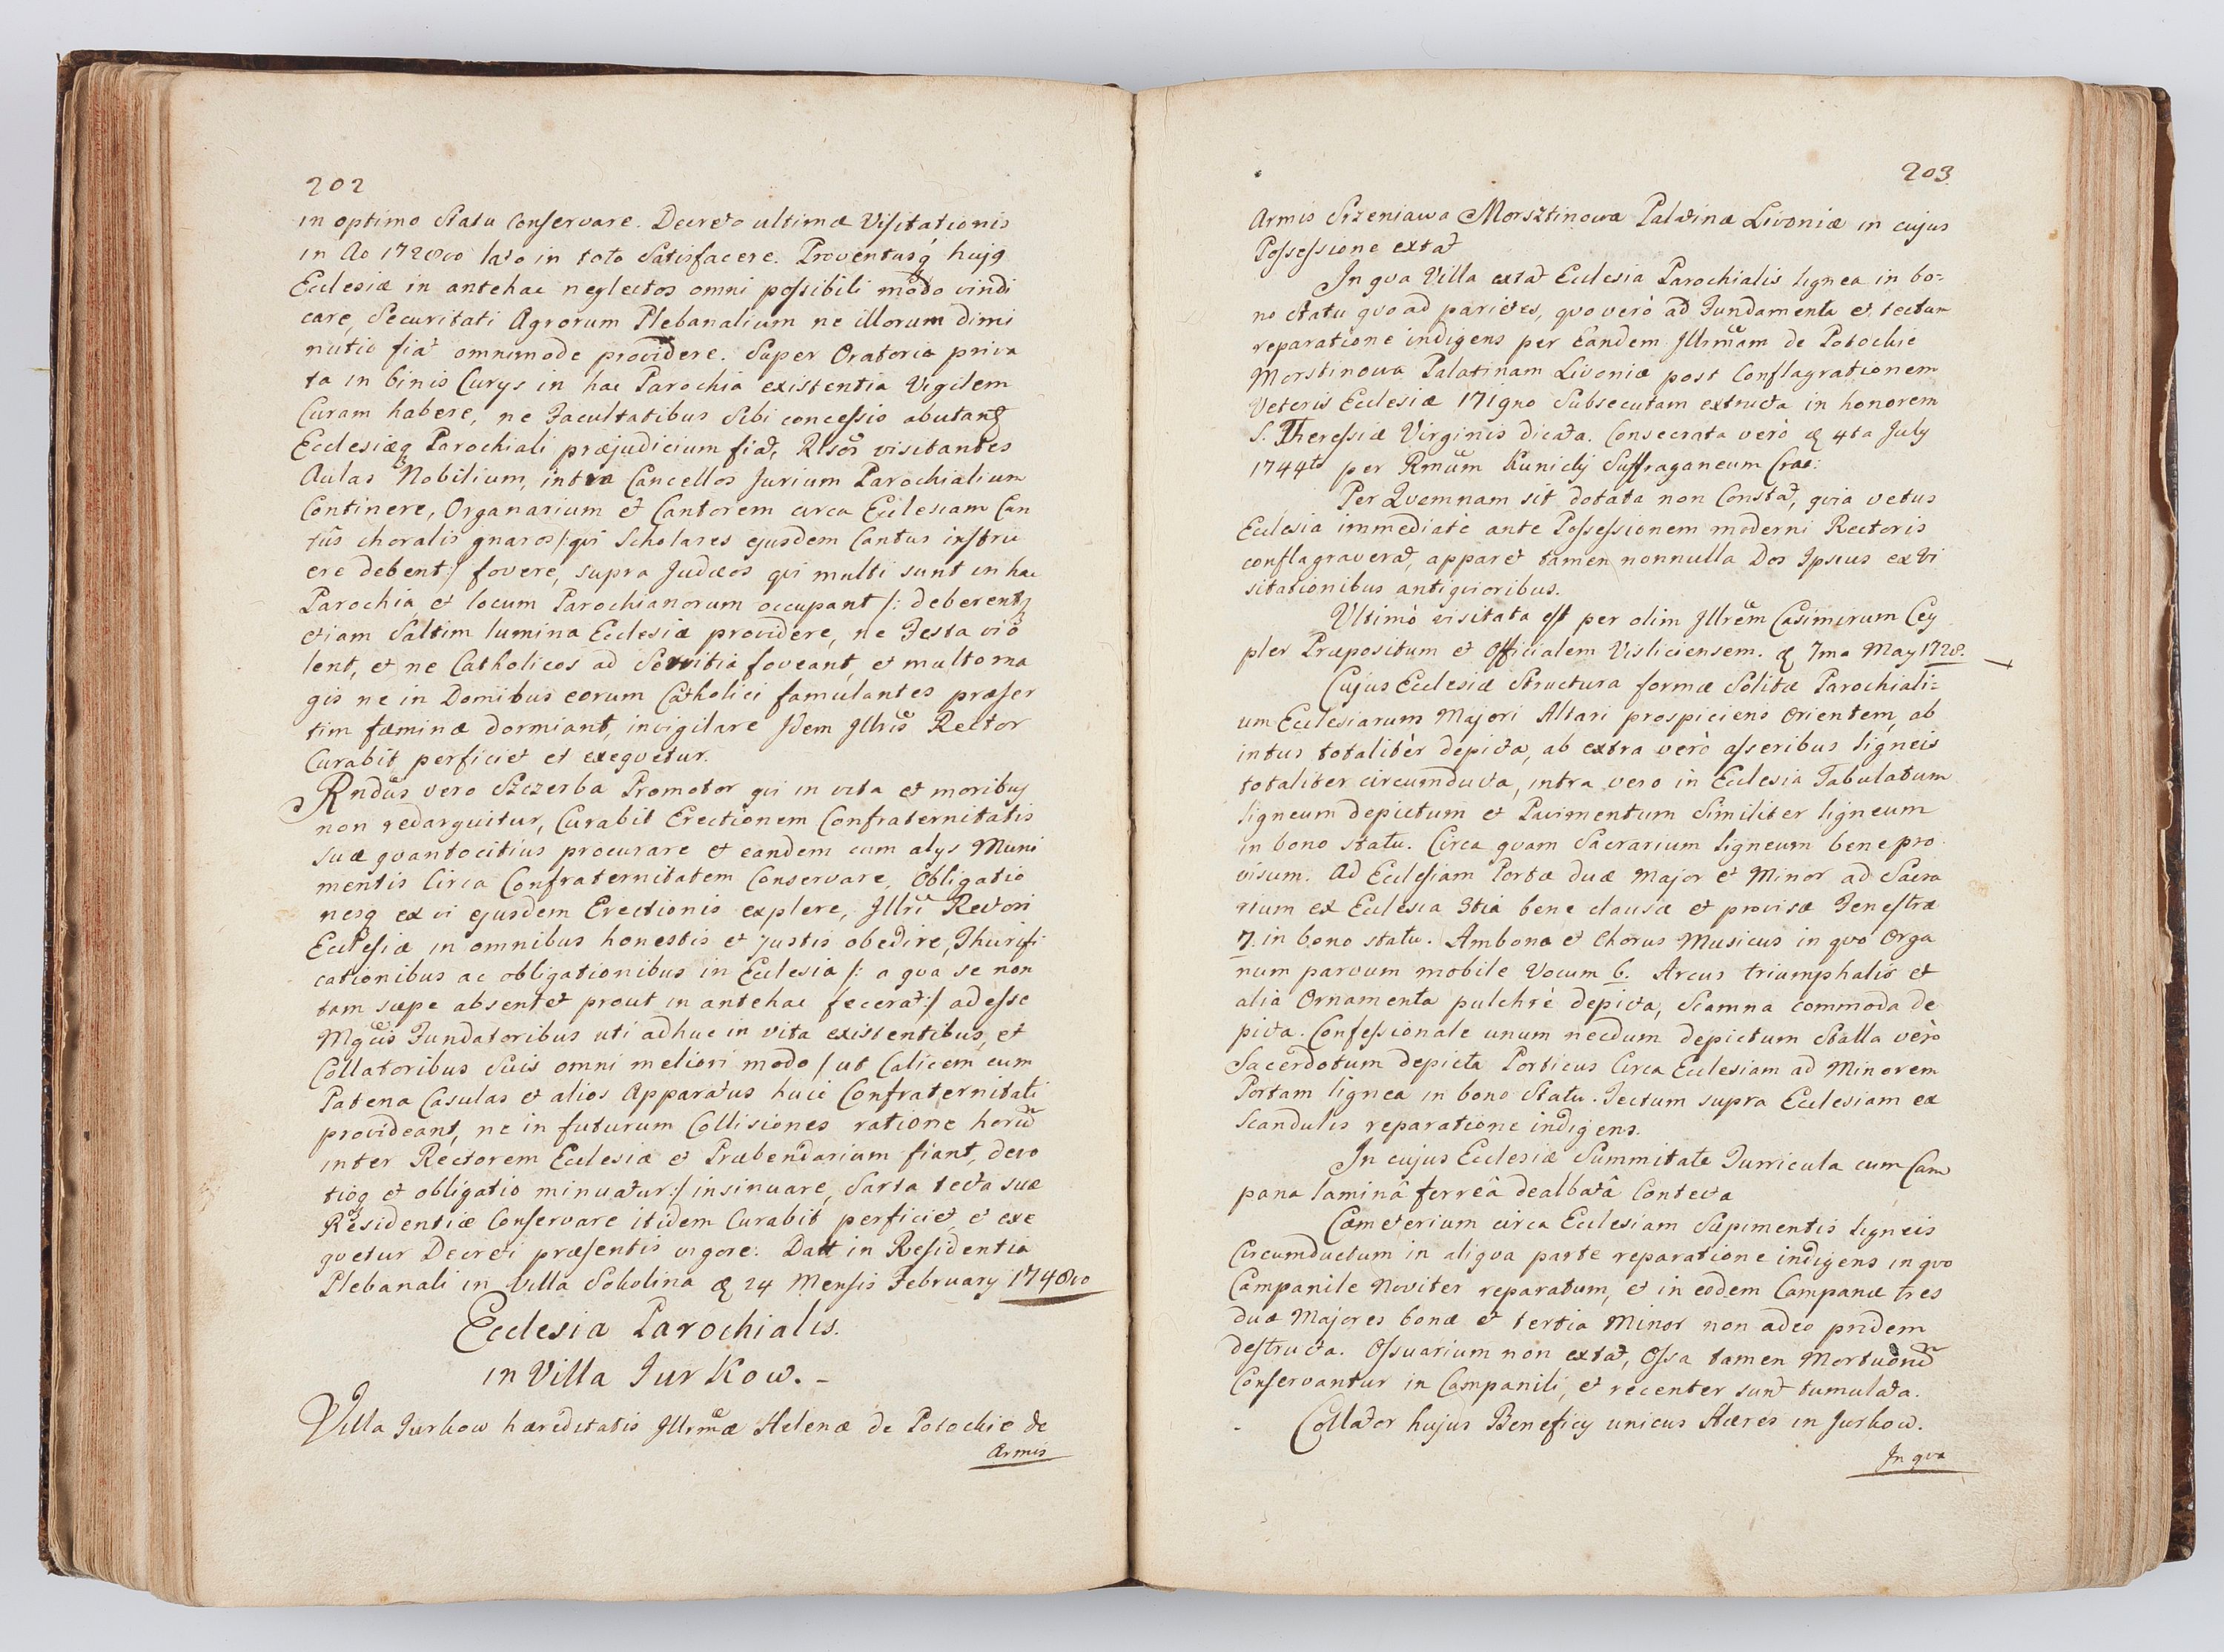 202
in optimo Statu Conservare. Decreto ultimæ Visitationis
in Ao 1728vo lato in toto Satisfacere. Proventusq́ hujq
Ecclesiæ in antehac neglectos omni possibili modo vindi
care, Securitati Agrorum Plebanalium ne illorum dimi
nutio fiat omnimode providere. Super Oratoria priva
ta in binis Curys in hac Parochia existentia Vigilem
Curam habere, ne Facultatibus Sibi concessis abutantq
Ecclesiæq Parochiali præjudicium fiat, visitantes
Aulas Nobilium, intra Cancellos Jurium Parochialium
Continere, Organarium et Cantorem circa Ecclesiam Can
tûs choralis gnaros /:qvi Scholares ejusdem Cantus instru
ere debent:/ fovere, supra Judæos qvi multi sunt in hac
Parochia et locum Parochianorum occupant /: deberentq
etiam Saltim lumina Ecclesiæ providere, ne Festa vio
lent, et ne Catholicos ad Servitia foveant, et multo ma
gis ne in Domibus eorum Catholici famulantes præser
tim fæminæ dormiant, invigilare Idem Illris Rector
Curabit perficiet et exeqvetur.
Rndus vero Szczerba Promotor qvi in vita et moribus
non redarguitur, Curabit Erectionem Confraternitatis
suæ qvantocitius procurare et eandem cum alys Muni
mentis Circa Confraternitatem Conservare, Obligatio
nesq ex vi ejusdem Erectionis explere, Illri Rectori
Ecclesiæ in omnibus honestis et justis obedire, Thurifi
cationibus ac obligationibus in Ecclesia /: a qva se non
tam sæpe absentet prout in antehac fecerat:/ adesse
Mgcis Fundatoribus uti adhuc in vita existentibus, et
Collatoribus Suis omni meliori modo / ut Calicem cum
Patena Casulas et alios Apparatus huic Confraternitati
provideant, ne in futurum Collisiones ratione horum
inter Rectorem Ecclesiæ et Præbendarium fiant, devo
tioq et obligatio minuatur:/ insinuare, Sarta tecta suæ
Residentiæ Conservare itidem Curabit perficiet et exe
qvetur Decreti præsentis vigore. Datt in Residentia
Plebanali in Villa Sokolina æ 24 Mensis February 1748vo
Ecclesia Parochialis.
in Villa Jurkow. -
Villa Jurkow hæreditatis Illrmæ Helenæ de Potockie de
Armis
203
Armis Srzeniawa Morsztinowa Palatinæ Livoniæ in cujus
Possessione extat
In qva Villa extat Ecclesia Parochialis lignea in bo=
no statu qvo ad parietes, qvo verò ad Fundamenta et tectum
reparatione indigens per Eandem Illrmam de Potockie
Morstinowa Palatinam Livoniæ post Conflagrationem
Veteris Ecclesiæ 171gno Subsecutam extructa in honorem
S. Theressiæ Virginis dicata. Consecrata verò æ 4ta July
1744to per Rmum Kunicky Suffraganeum Crac:
Per Qvemnam sit dotata non Constat, qvia vetus
Ecclesia immediate ante Possessionem moderni Rectoris
conflagraverat, apparet tamen nonnulla Dos Ipsius ex Vi
sitationibus antiqvioribus.
Ultimò visitata est per olim Illrem Casimirum Cey
pler Præpositum et Officialem Visliciensem. æ 7ma May 1728.
Cujus Ecclesiæ Structura formæ Solitæ Parochiali=
um Ecclesiarum Majori Altari prospiciens Orientem, ab
intus totalitèr depicta, ab extra verò asseribus ligneis
totaliter circumducta, intra vero in Ecclesia Tabulatum
ligneum depictum et Pavimentum Similiter ligneum
in bono statu. Circa qvam Sacrarium ligneum bene pro
visum. Ad Ecclesiam Portæ duæ Major et Minor ad Sacra
rium ex Ecclesia 3tia bene clausæ et provisæ Fenestræ
7. in bono statu. Ambona et Chorus Musicus in qvo Orga
num parvum mobile Vocum 6. Arcus triumphalis et
alia Ornamenta pulchrè depicta, Scamna commoda de
picta. Confessionale unum necdum depictum Stalla verò
Sacerdotum depicta Porticus Circa Ecclesiam ad Minorem
Portam lignea in bono Statu. Tectum supra Ecclesiam ex
Scandulis reparatione indigens.
In cujus Ecclesiæ Summitate Turricula cum Cam
pana laminâ ferreâ dealbatâ Contecta
Cæmeterium circa Ecclesiam Sæpimentis ligneis
Circumductum in aliqva parte reparatione indigens in qvo
Campanile Noviter reparatum, et in eodem Campanæ tres
duæ Majores bonæ et tertia Minor non adeo pridem
destructa. Ossuarium non extat, Ossa tamen Mortuorum
Conservantur in Campanili, et recenter sunt tumulata.
Collator hujus Beneficy unicus Hæres in Jurkow.
In qva